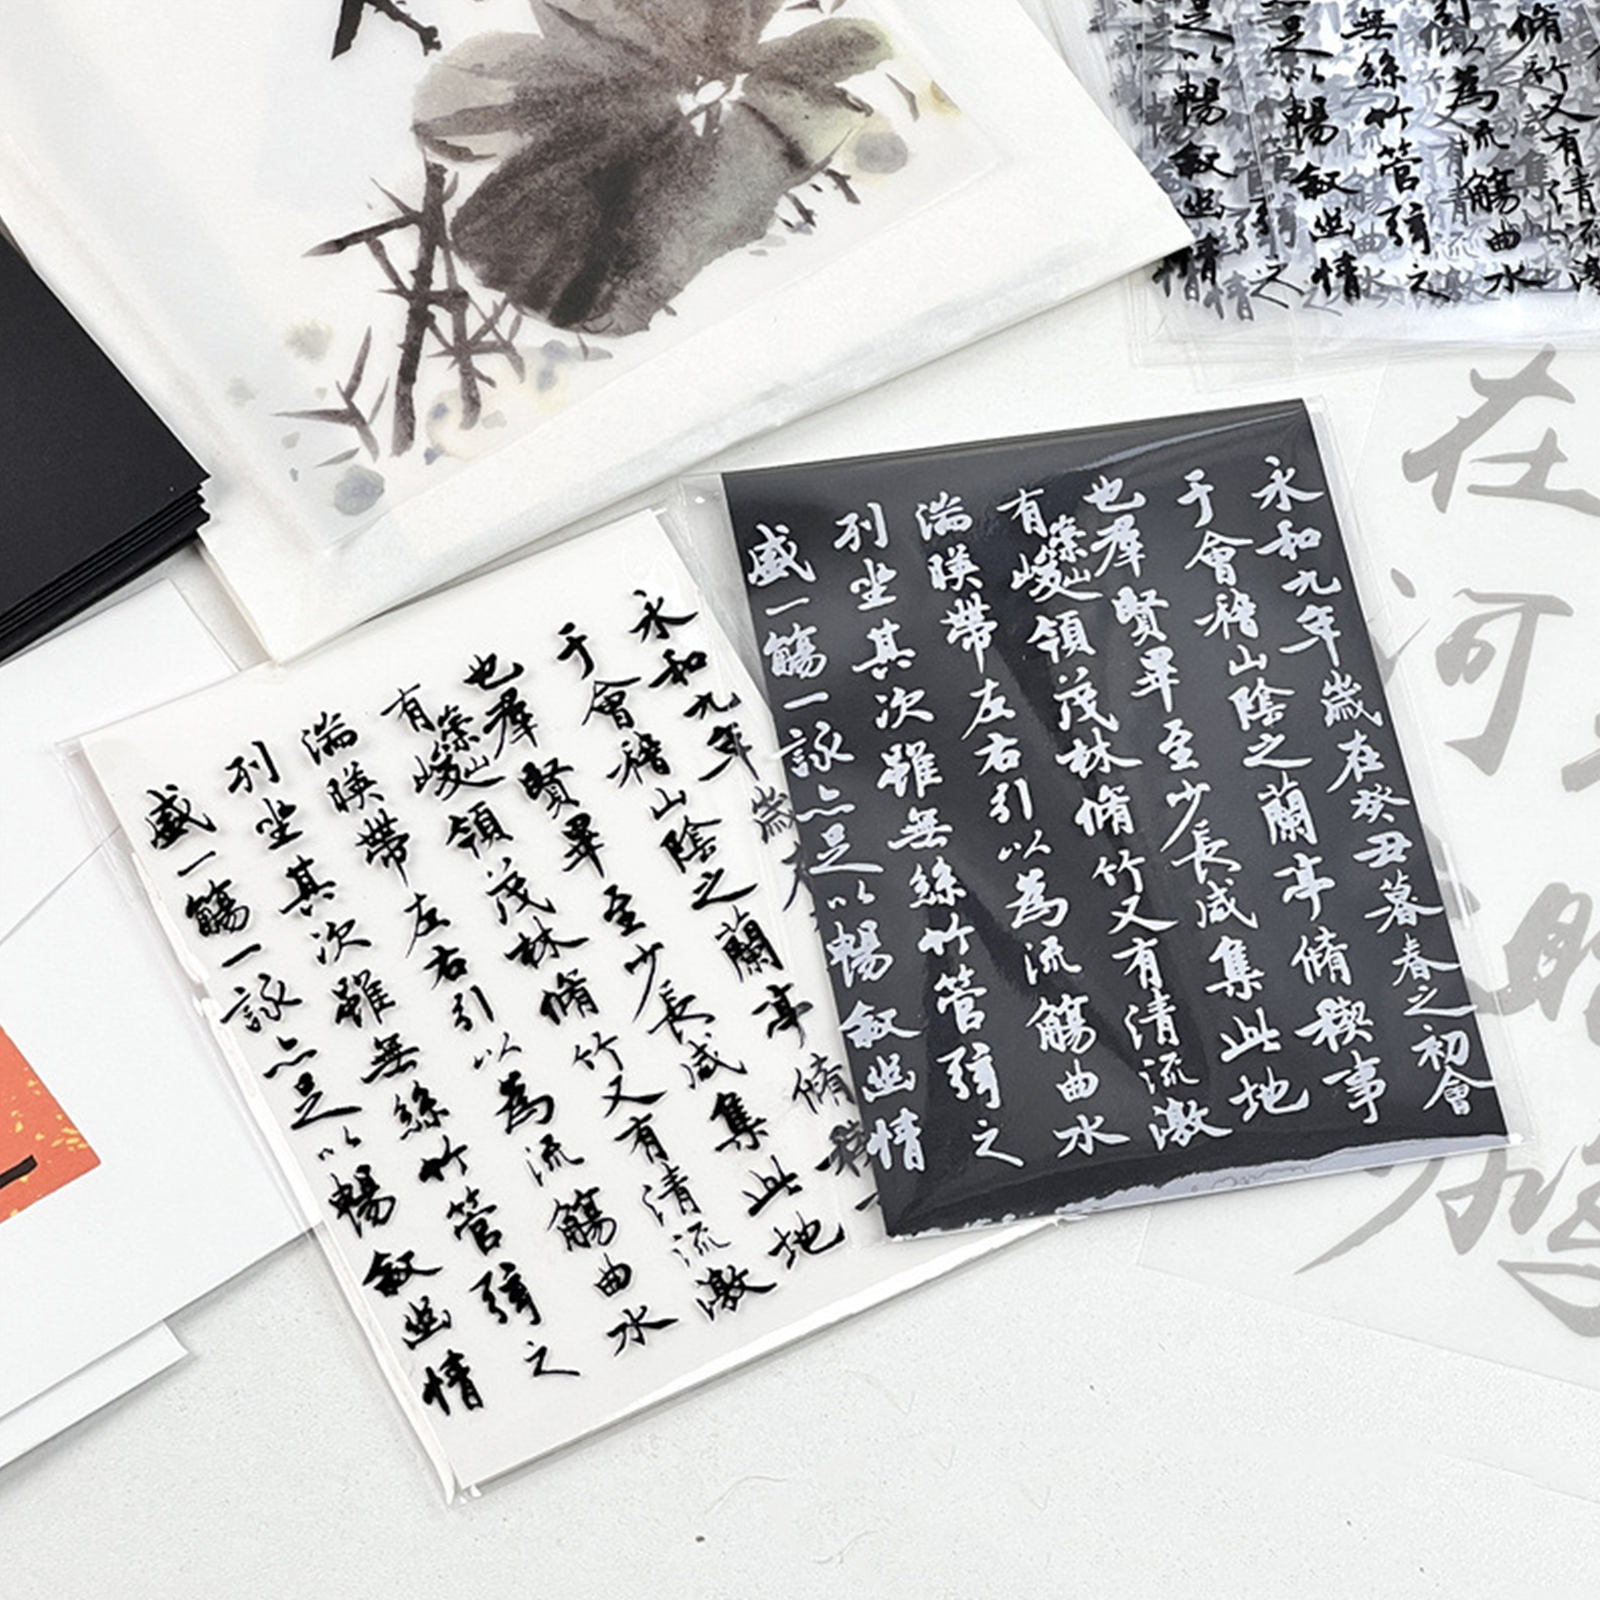 永和九年歲在癸丑暮春之初會
于會稽山陰之蘭亭脩稧事
也羣賢畢至少長咸集此地
有崇山峻領茂林脩竹又有清流激
湍暎帶左右引以為流觴曲水
列坐其次雖無絲竹管弦之
盛一觴一詠亦足以暢敘幽情
永和九年歲
于會稽山陰之蘭亭脩稧
也羣賢畢至少長咸集此地
有崇山峻領茂林脩竹又有清流激
湍暎帶左右引以為流觴曲水
列坐其次雖無絲竹管弦之
盛一觴一詠亦足以暢敘幽情
脩竹又有清流激
引以為流觴曲水
無絲竹管弦之
足以暢敘幽情
足以暢敘幽情
在河